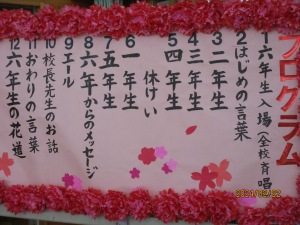 プログラム
1 六年生入場(全校斉唱
2 はじめの言葉
3 二年生
4 三年生
5 四年生
休けい
6 一年生
7 五年生
8 六年生からのメッセージ
9 エール
10 校長先生のお話
11 おわりの言葉
12 六年生の花道